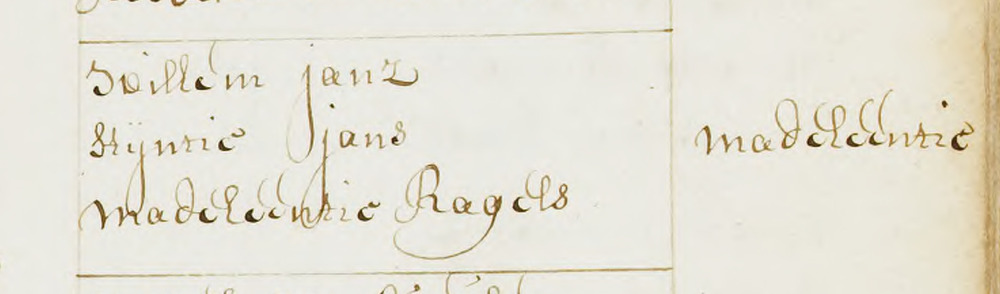 Willem janz
Stijntie jans
madeleentie Ragels
madeleentie